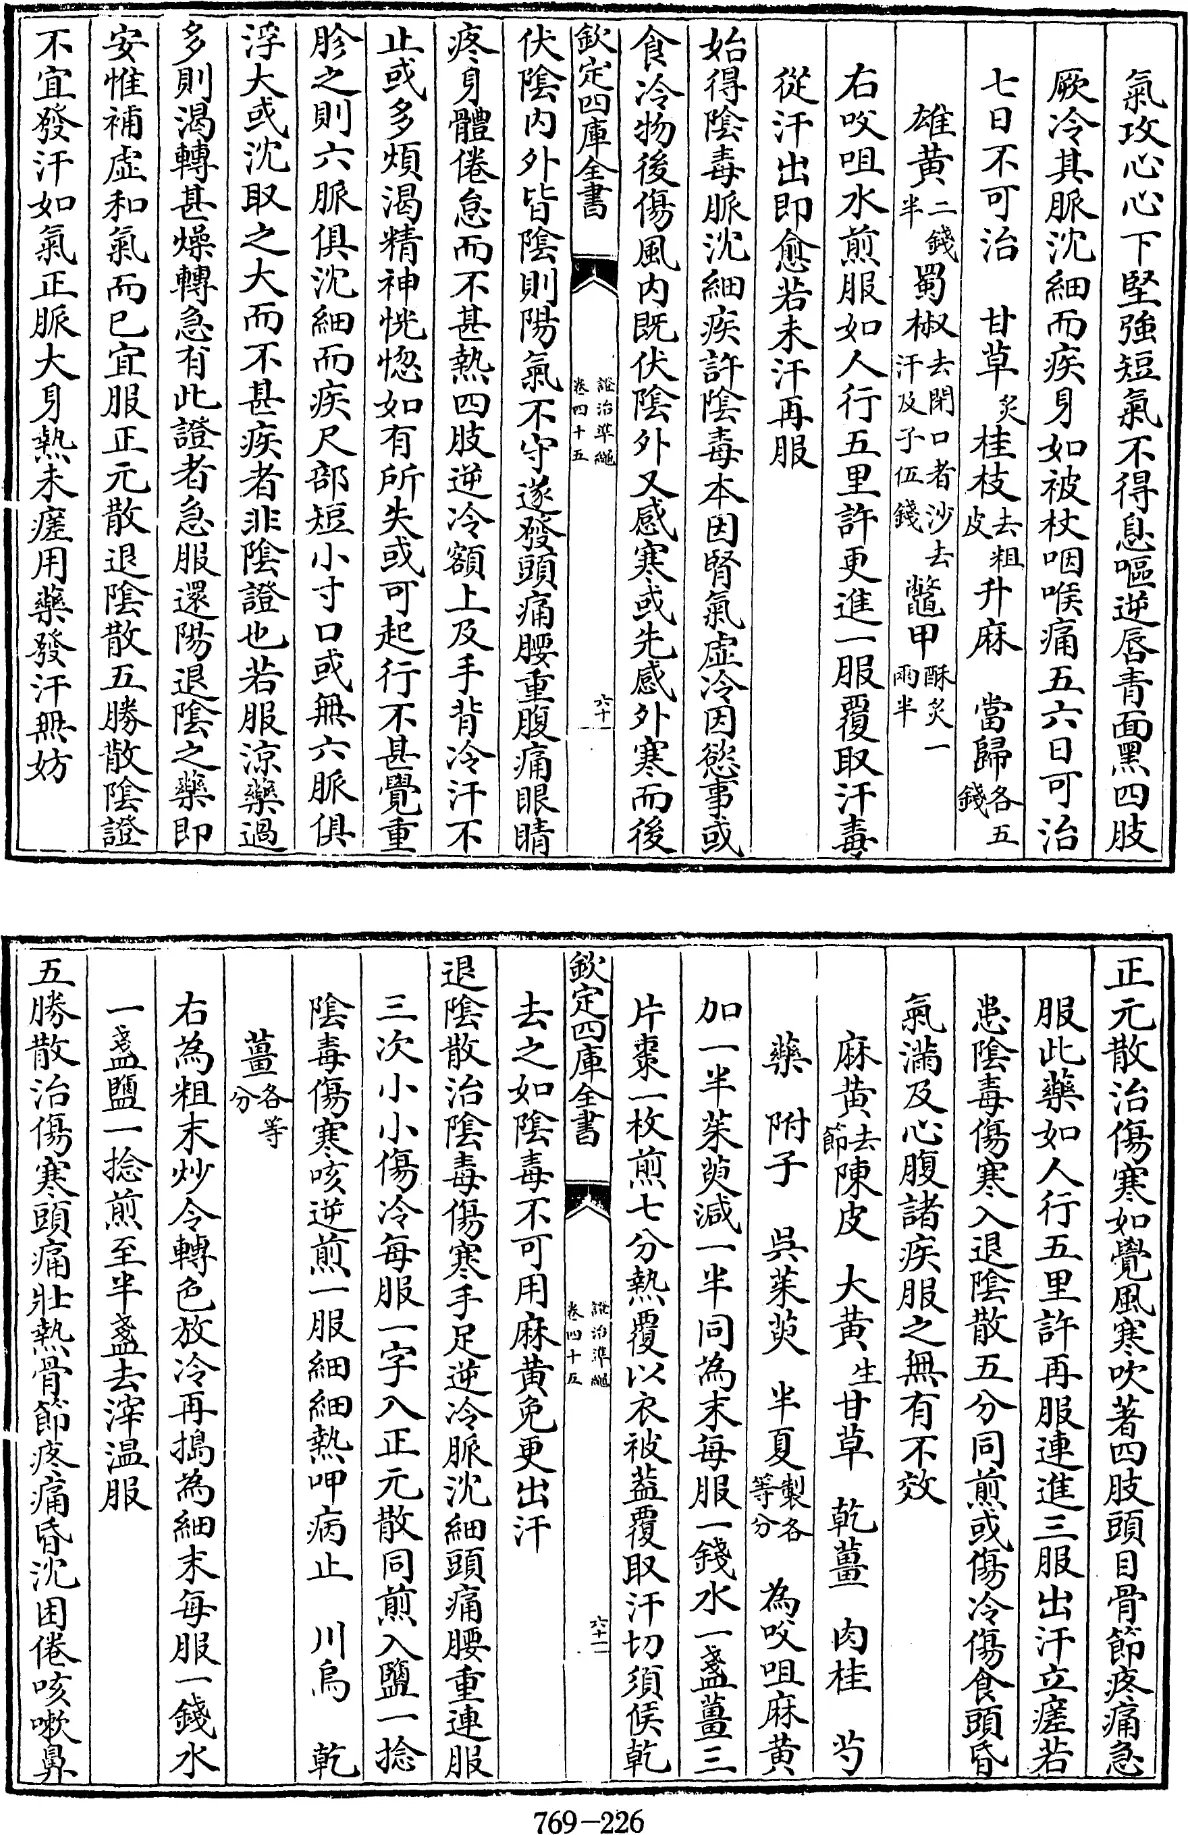 氣攻心心下堅強短氣不得息嘔逆唇青面黑四肢
厥冷其脈沈細而疾身如被杖咽喉痛五六日可治
七日不可治　甘草炙桂枝去粗皮升麻　當歸各五錢
雄黃二錢半蜀椒去閉口者沙去汗及子伍錢鼈甲酥炙一兩半
右㕮咀水煎服如人行五里許更進一服覆取汗毒
從汗出即愈若未汗再服
始得陰毒脈沈細疾許陰毒本因腎氣虛冷因慾事或
食冷物後傷風内既伏陰外又感寒或先感外寒而後
欽定四庫全書　證治準繩卷四十五　六十一
伏陰内外皆陰則陽氣不守遂發頭痛腰重腹痛眼睛
疼身體倦怠而不甚熱四肢逆冷額上及手背冷汗不
止或多煩渴精神恍惚如有所失或可起行不甚覺重
胗之則六脈俱沈細而疾尺部短小寸口或無六脈俱
浮大或沈取之大而不甚疾者非陰證也若服涼藥過
多則渴轉甚燥轉急有此證者急服還陽退陰之藥即
安惟補虛和氣而已宜服正元散退陰散五勝散陰證
不宜發汗如氣正脈大身熱未瘥用藥發汗無妨
正元散治傷寒如覺風寒吹著四肢頭目骨節疼痛急
服此藥如人行五里許再服連進三服出汗立瘥若
患陰毒傷寒入退陰散五分同煎或傷冷傷食頭昏
氣滿及心腹諸疾服之無有不效
麻黃去節陳皮　大黃生甘草　乾薑　肉桂　芍
藥　附子　吳茱萸　半夏製各等分　為㕮咀麻黃
加一半茱萸減一半同為末每服一錢水一盞薑三
片棗一枚煎七分熱覆以衣被蓋覆取汗切須候乾
欽定四庫全書　證治準繩卷四十五　六十二
去之如陰毒不可用麻黃免更出汗
退陰散治陰毒傷寒手足逆冷脈沈細頭痛腰重連服
三次小小傷冷每服一字入正元散同煎入鹽一捻
陰毒傷寒咳逆煎一服細細熱呷病止　川烏　乾
薑各等分
右為粗末炒令轉色放冷再搗為細末每服一錢水
一盞鹽一捻煎至半盞去滓温服
五勝散治傷寒頭痛壯熱骨節疼痛昏沈困倦咳嗽鼻
769-226